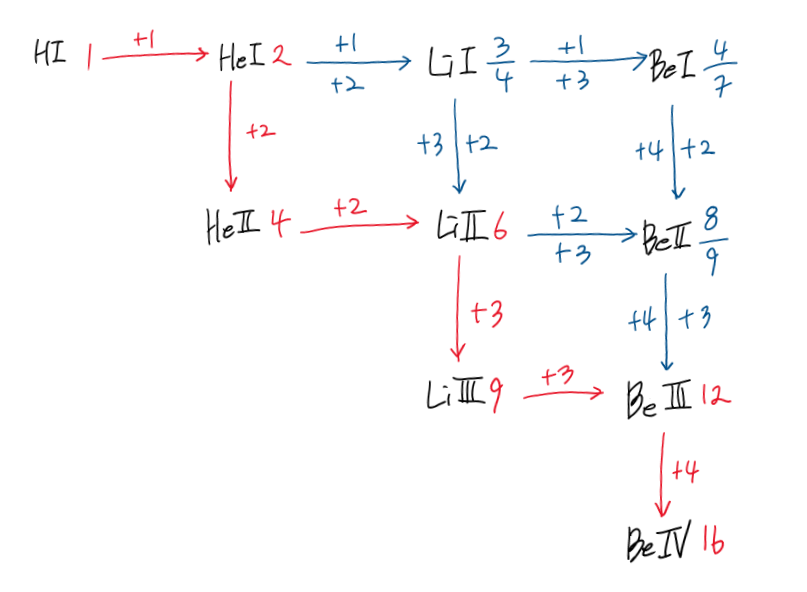 HI 1 +1 HeI 2 +1 +2 LiI 3/4 +1 +3 BeI 4/7
+2 +3 +2 +4 +2
HeII 4 +2 LiII 6 +2 +3 BeII 8/9
+3 +4 +3
LiIII 9 +3 BeIII 12
+4
BeIV 16